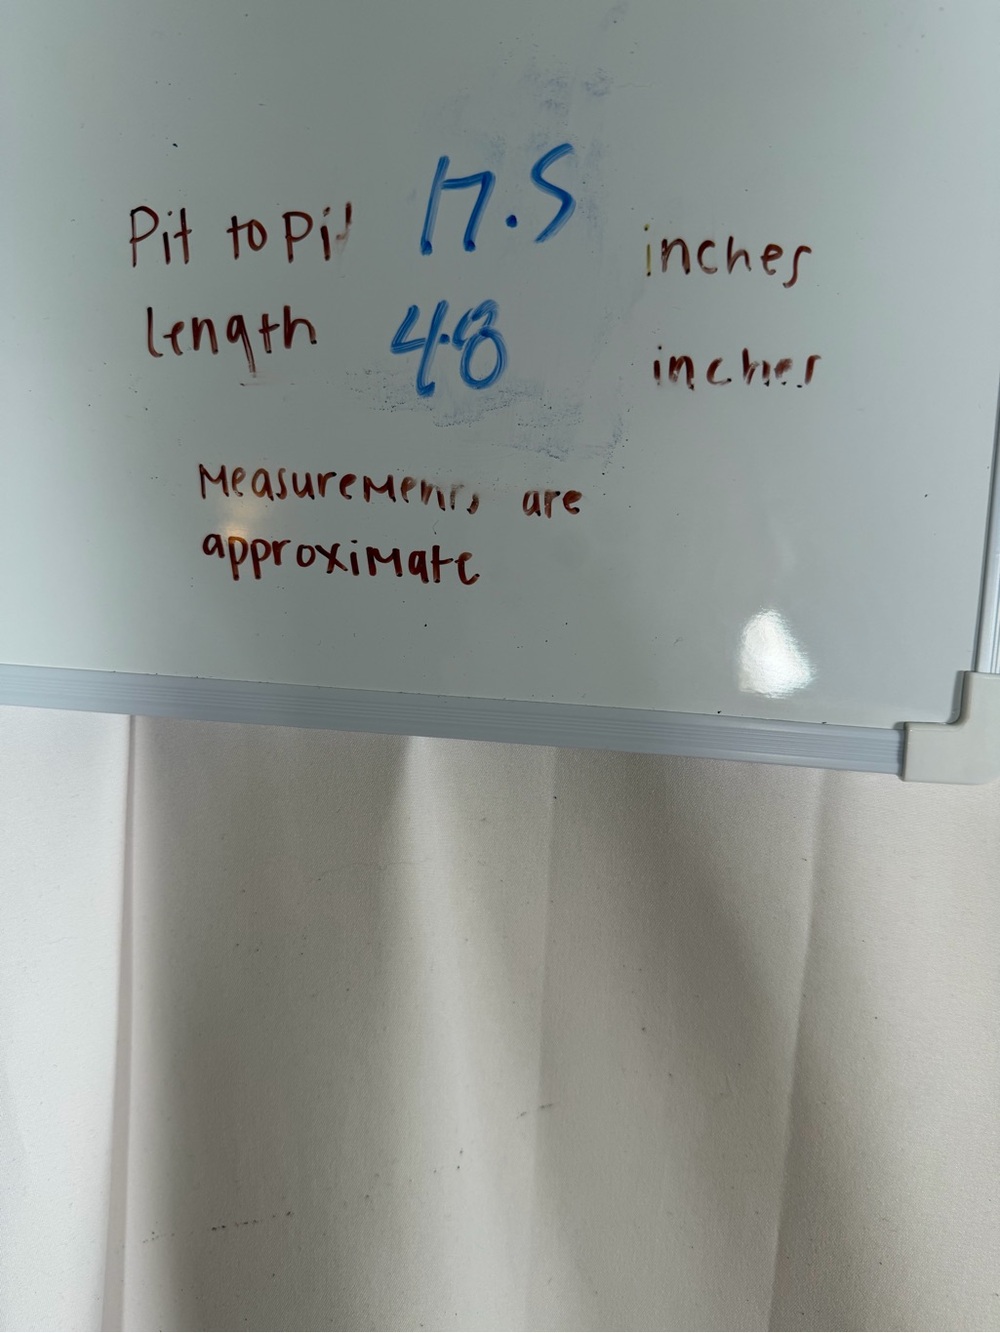 Pit to Pit 17.5 inches
length 48 inches
Measurements are
approximate